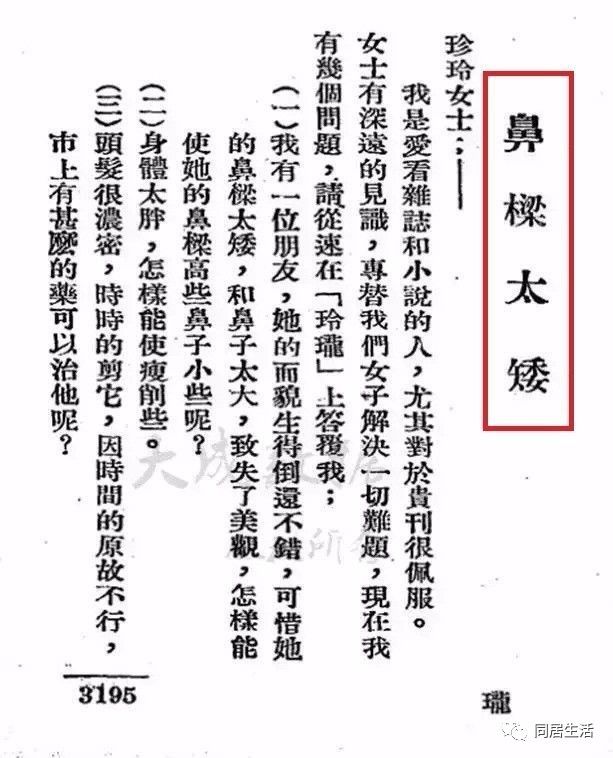 鼻樑太矮
珍玲女士：——
我是愛看雜誌和小說的人，尤其對於貴刊很佩服。
女士有深遠的見識，專替我們女子解決一切難題，現在我
有幾個問題，請從速在「玲瓏」上答覆我；
（一）我有一位朋友，她的面貌生得倒還不錯，可惜她
的鼻樑太矮，和鼻子太大，致失了美觀，怎樣能
使她的鼻樑高些鼻子小些呢？
（二）身體太胖，怎樣能使瘦削些。
（三）頭髮很濃密，時時的剪它，因時間的原故不行，
市上有甚麼的藥可以治他呢？
3195
瓏
同居生活